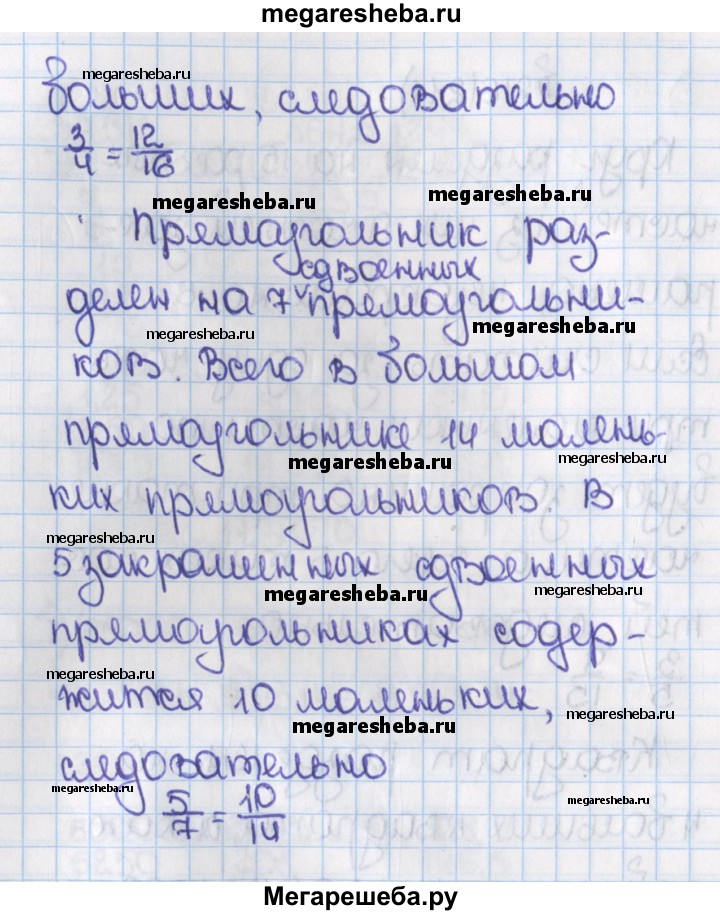 megaresheba.ru
megaresheba.ru
больших, следовательно
3/4 = 12/16
megaresheba.ru megaresheba.ru
Прямоугольник раз-
сдвоенных
делен на 7 прямоугольни-
megaresheba.ru megaresheba.ru
ков. Всего в большом
прямоугольнике 14 малень-
megaresheba.ru megaresheba.ru
ких прямоугольников. В
megaresheba.ru
5 закрашенных сдвоенных
megaresheba.ru megaresheba.ru
прямоугольниках содер-
megaresheba.ru
жится 10 маленьких,
megaresheba.ru megaresheba.ru
следовательно
megaresheba.ru
5/7 = 10/14
megaresheba.ru
Мегарешеба.ру